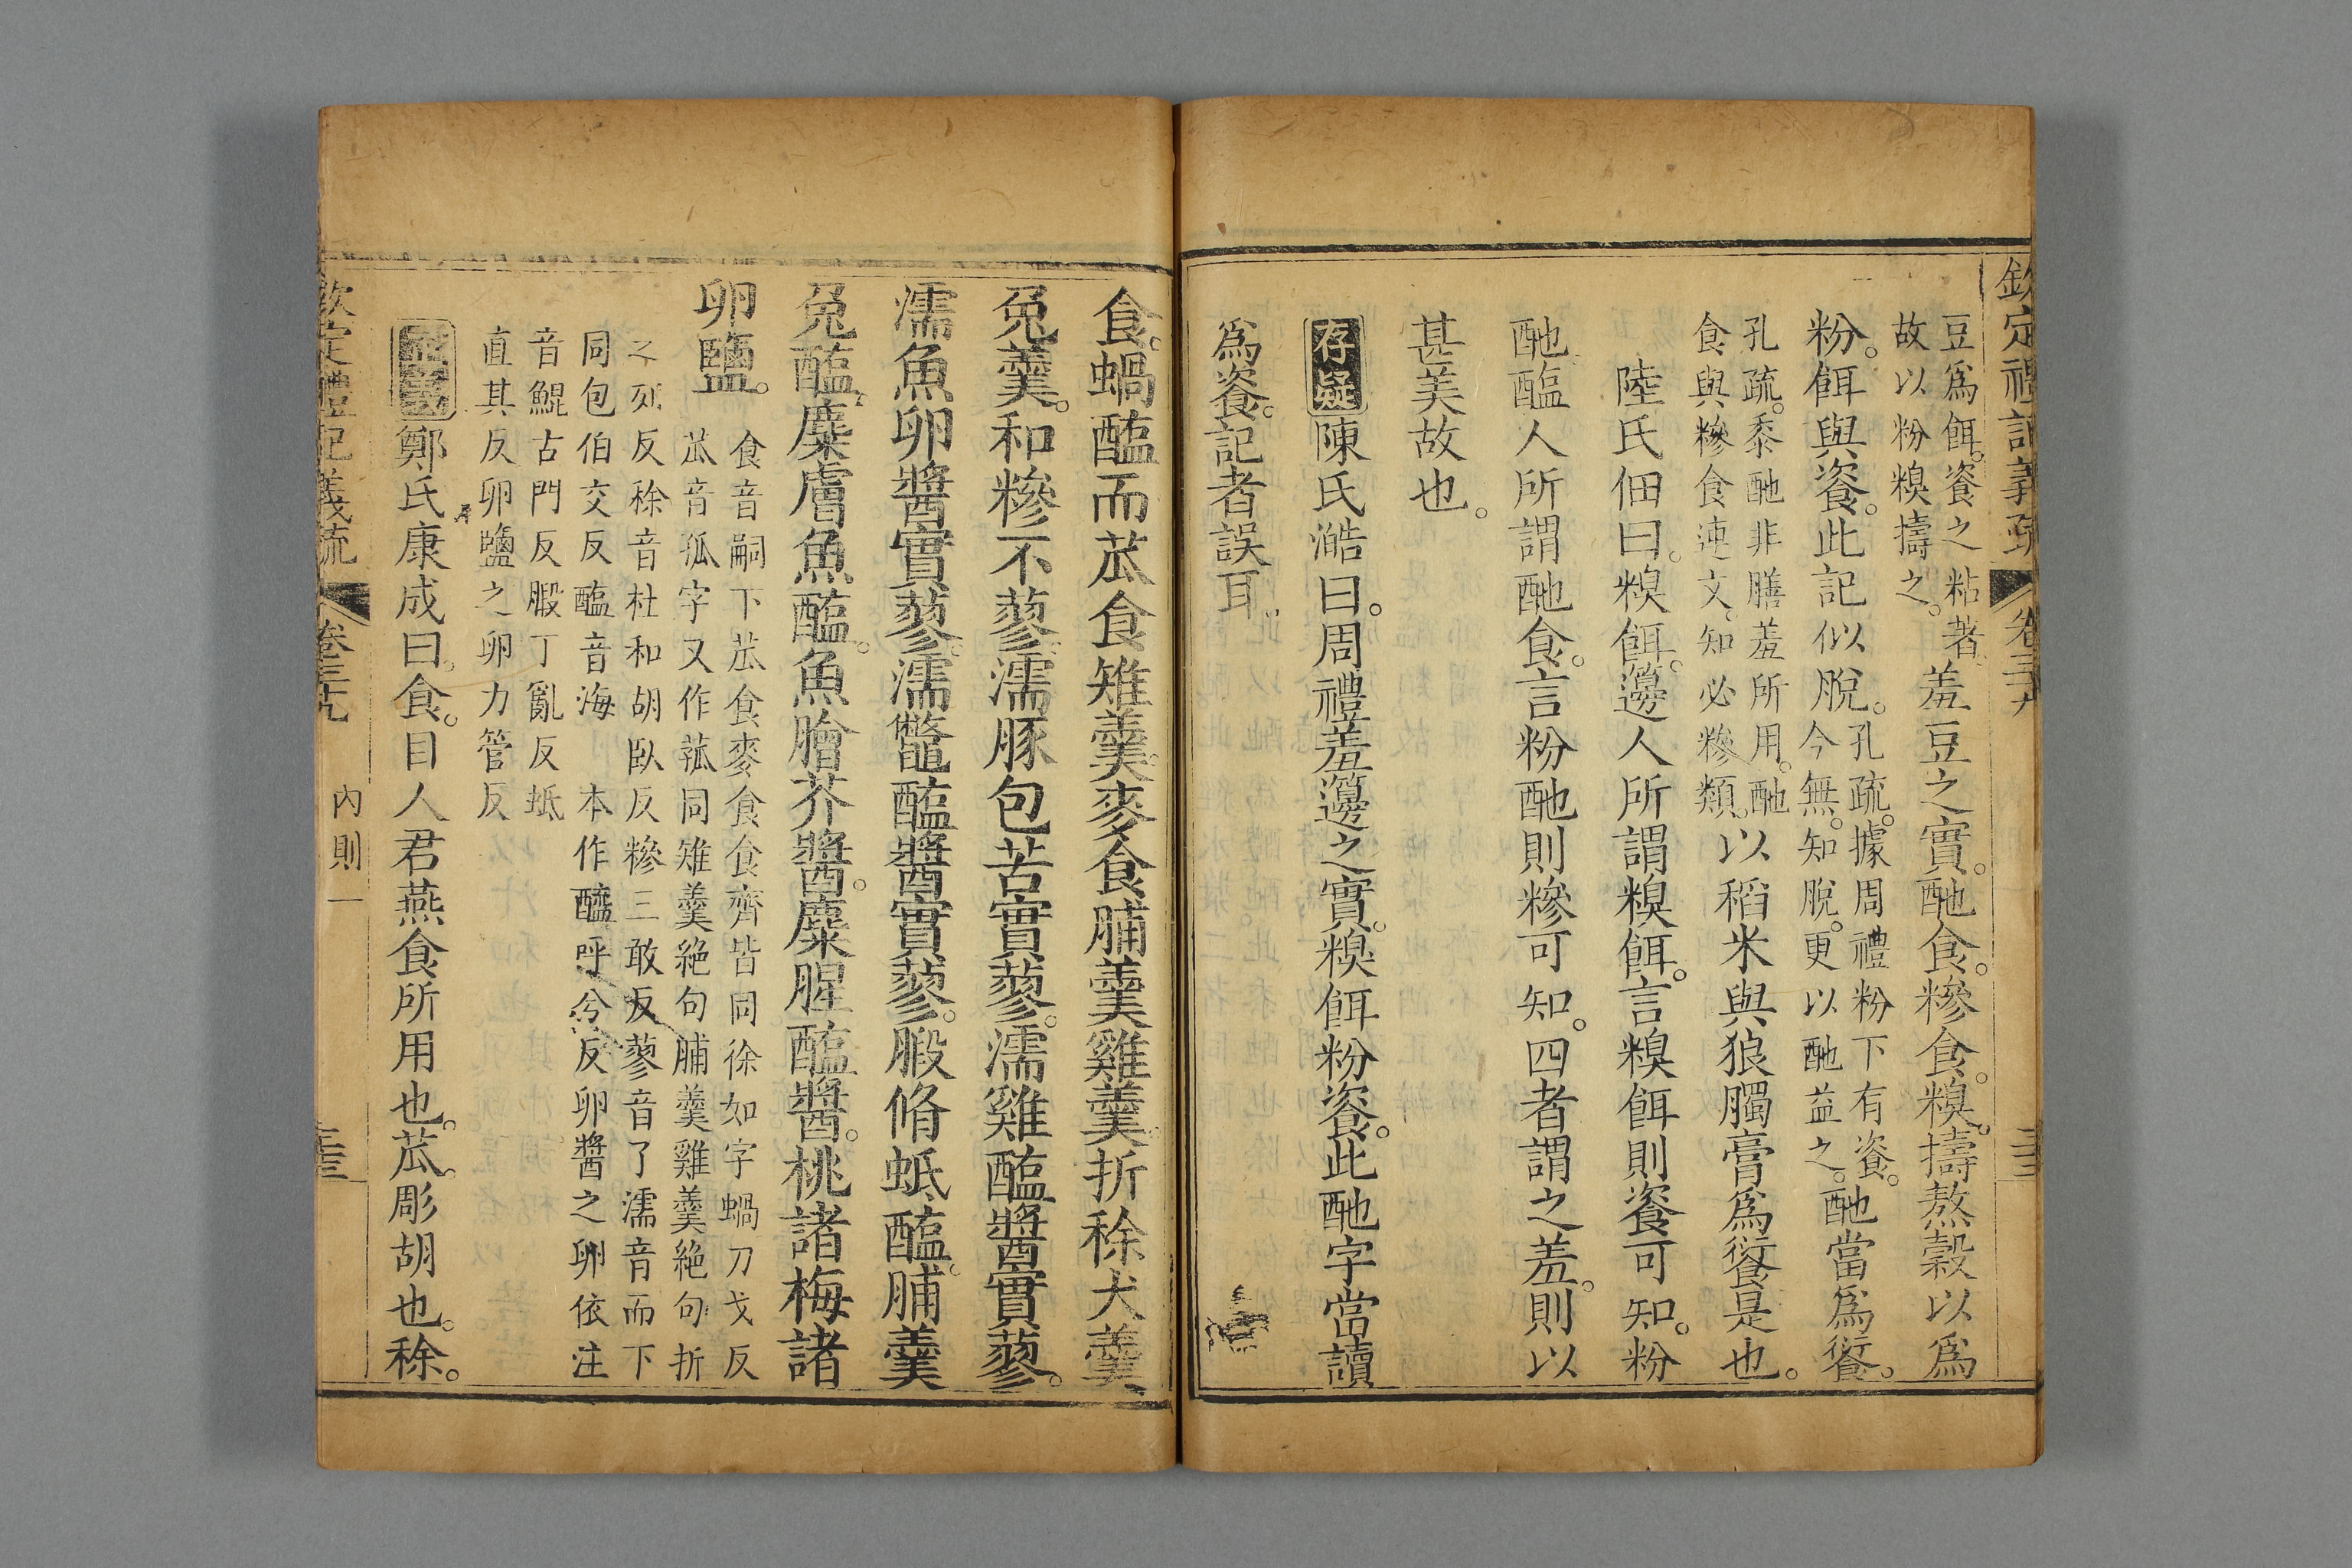 欽定禮記義疏 卷三十九
豆爲餌。餈之粘著
故以粉糗擣之。
羞豆之實。酏食。糝食。糗。擣熬穀以爲
粉。餌與餈。此記似脫。
孔疏。據周禮粉下有餈。
今無。知脫。更以酏益之。
酏當爲餰。
孔疏。黍酏非膳羞所用。酏
食與糝食連文。知必糝類。
以稻米與狼臅膏爲餰是也。
陸氏佃曰。糗餌。籩人所謂糗餌。言糗餌則餈可知。粉
酏。醢人所謂酏食。言粉酏則糝可知。四者謂之羞。則以
甚美故也。
存疑 陳氏澔曰。周禮羞籩之實。糗餌粉餈。此酏字當讀
爲餈。記者誤耳。
食。蝸醢而苽食雉羹。麥食脯羹雞羹。折稌犬羹
兔羹。和糝不蓼。濡豚包苦實蓼。濡雞醢醬實蓼。
濡魚卵醬實蓼。濡鼈醢醬實蓼。腶脩蚳醢。脯羹
兔醢。麋膚魚醢。魚膾芥醬。麋腥醢醬。桃諸梅諸
卵鹽。
食音嗣下苽食麥食食齊皆同徐如字蝸力戈反
苽音孤字又作菰同雉羹絶句脯羹雞羹絶句折
之列反稌音杜和胡臥反糝三敢反蓼音了濡音而下
同包伯交反醢音海 本作醯呼兮反卵醬之卵依注
音鯤古門反腶丁亂反蚳
直其反卵鹽之卵力管反
鄭氏康成曰。食。目人君燕食所用也。苽。彫胡也。稌。
欽定禮記義疏 卷三十九 內則一